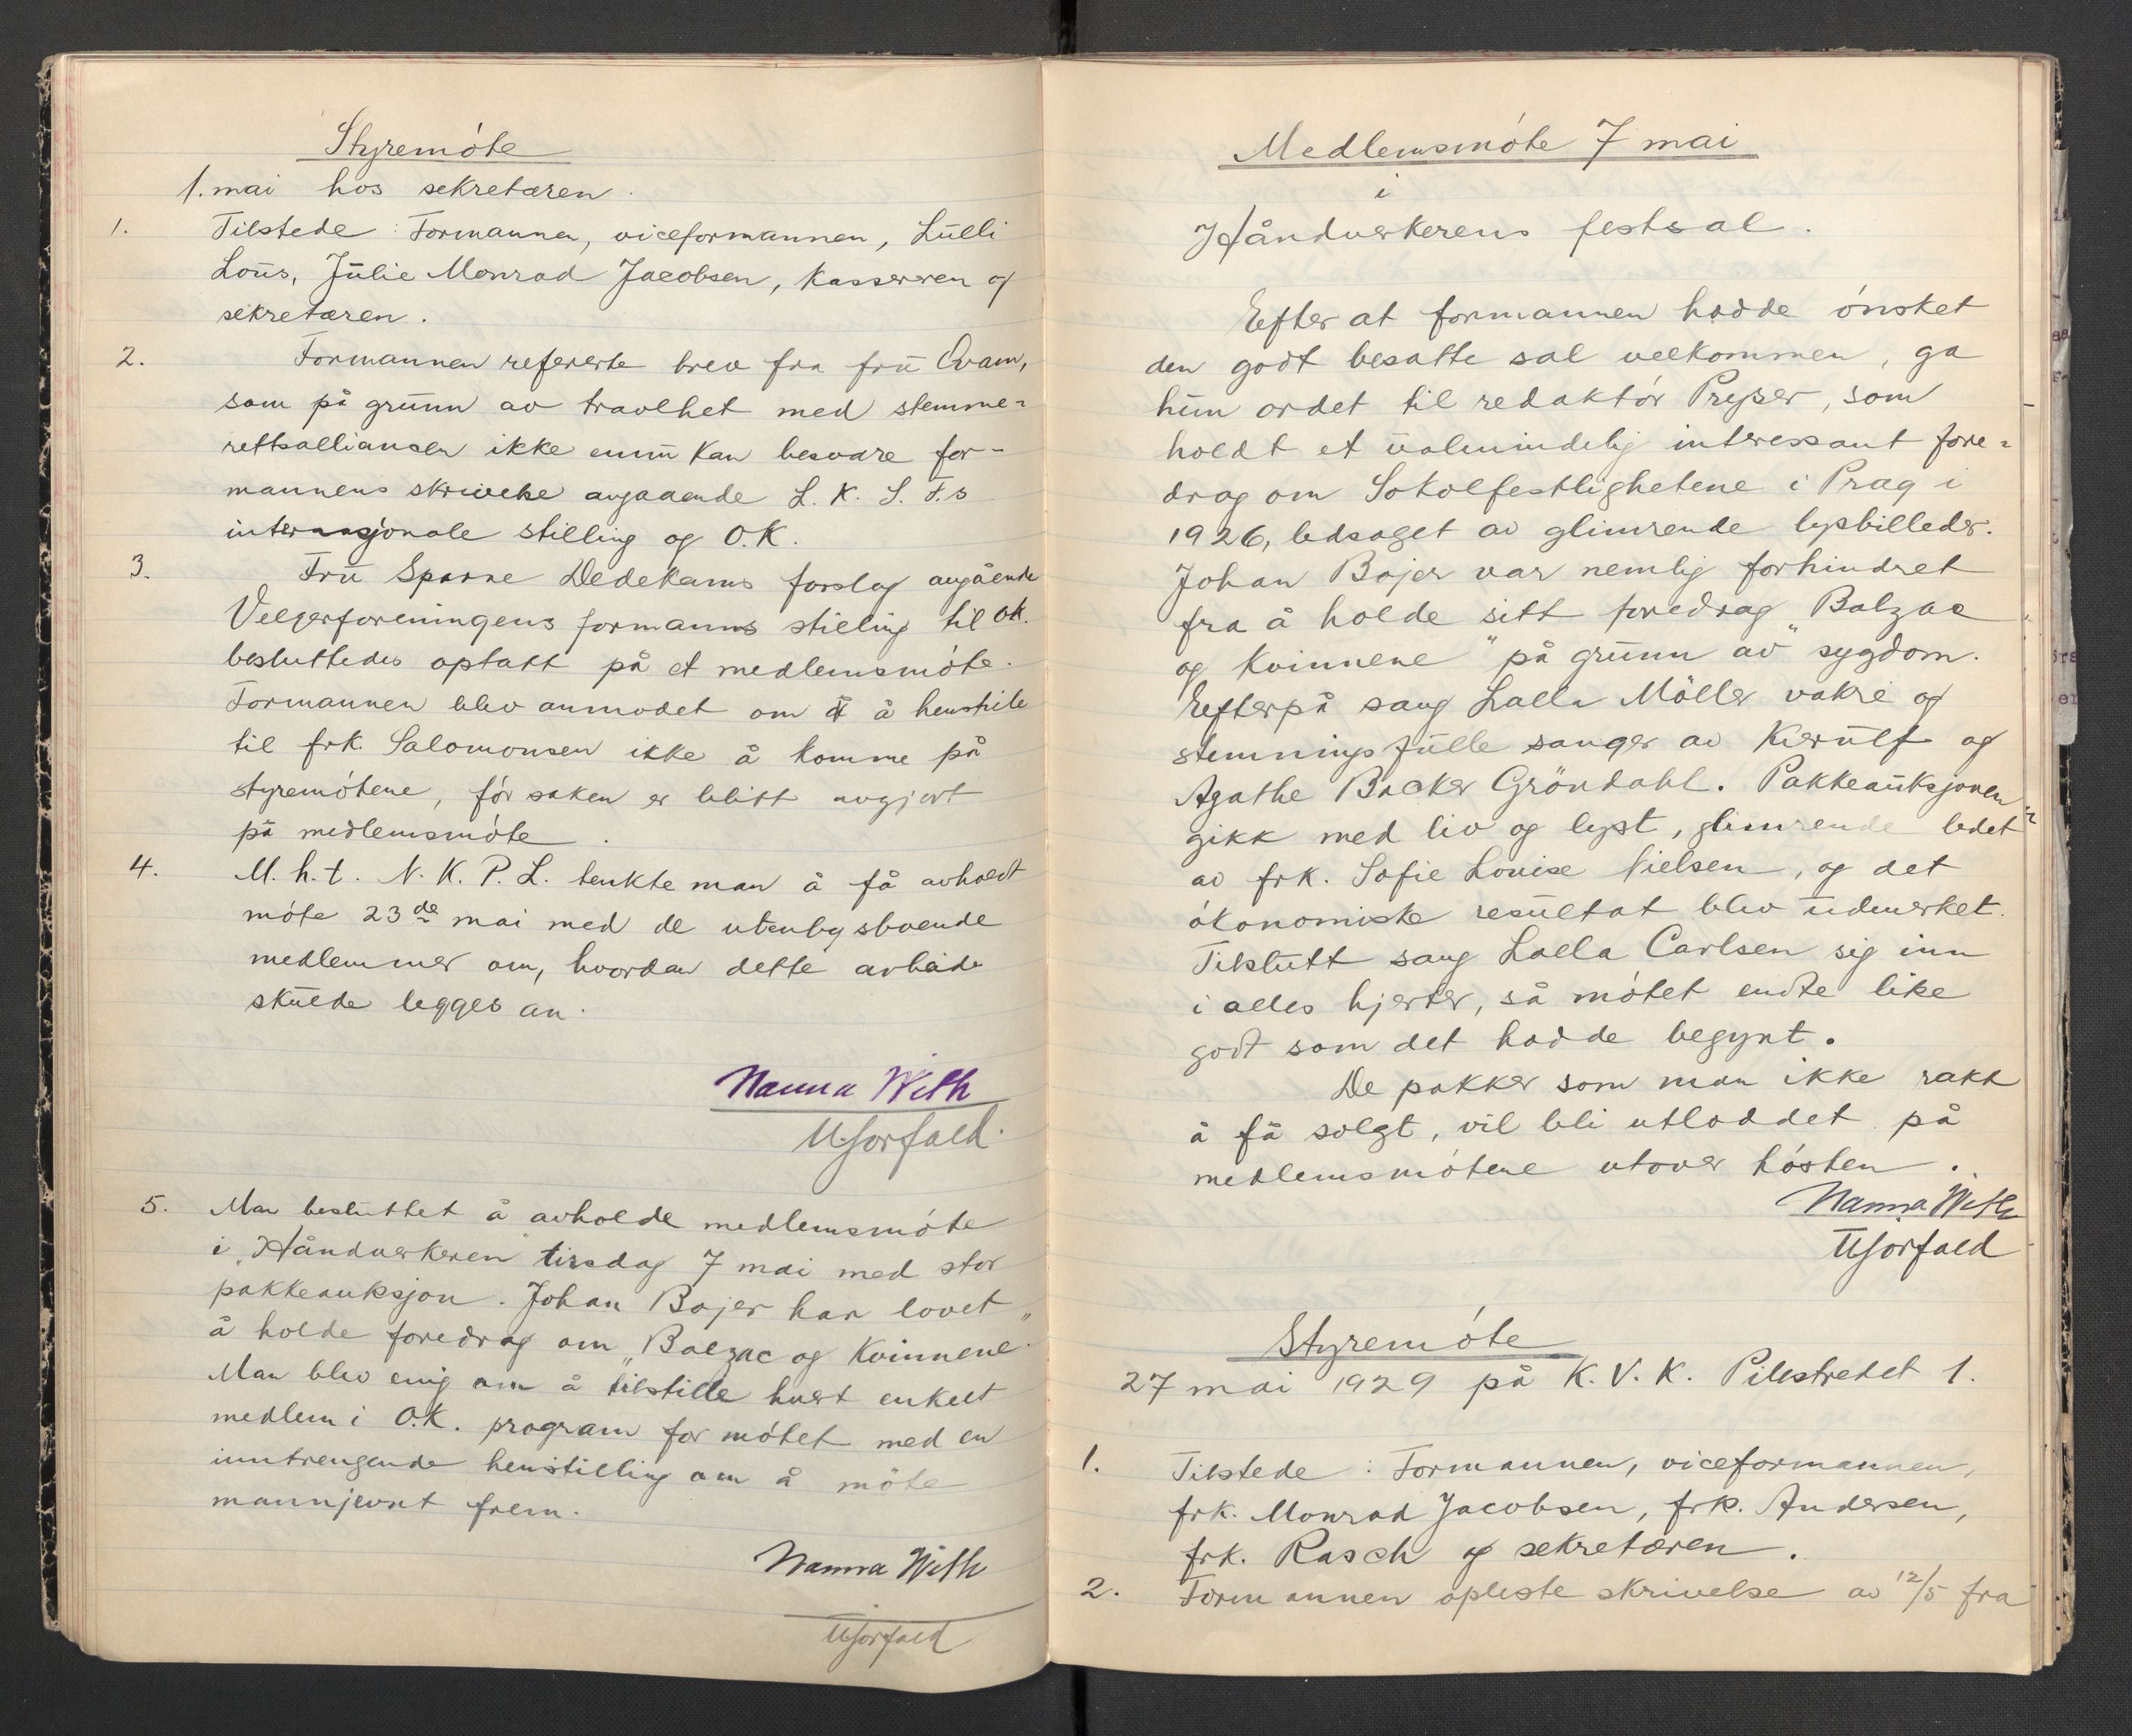 Styremóte
1. mai hos sekretæren.
1. Tilstede: Formannen, viceformannen, Lülli
Loüs, Jülie Monrad Jacobsen, Kassereren og
sekretæren.
2. Formannen refererte brev fra frü Qvam,
som på grünn av travlhet med stemme=
rettsalliansen ikke ennü kan besvare for-
mannens skrivelse angaaende L. K. S. F.s
internasjonale stilling og O.K.
3. Frü Sparre Dedekams forslag angående
Velgerforeningens formanns stilling til O.K.
besluttedes optatt på et medlemsmóte.
Formannen blev anmodet om å henstille
til frk. Salomonsen ikke å komme på
styremótene, fór saken er blitt avgjort
på medlemsmóte.
4. M. h. t. N. K. P. L. tenkte man å få avholdt
móte 23de mai med de utenbysboende
medlemmer om, hvordan dette arbeide
skülde legges an.
Nanna With
5. Man beslüttet å avholde medlemsmóte
i "Håndverkeren" tirsdag 7 mai med stor
pakkeauksjon. Johan Bojer har lovet
å holde foredrag om "Balzac og Kvinnene".
Man blev enig om å tilstille hvert enkelt
medlem i O.K. program for mótet med en
inntrengende henstilling om å móte
mannjevnt frem.
Nanna With
Medlemsmóte 7 mai
i
Håndverkerens festsal.
Efter at formannen hadde ónsket
den godt besatte sal velkommen, ga
hün ordet til redaktór Preyser, som
holdt et üalmindelig interessant fore=
drag om Sokolfestlighetene i Prag i
1926, ledsaget av glimrende lysbilleder.
Johan Bojer var nemlig forhindret
fra å holde sitt foredrag "Balzac
og Kvinnene" på grünn av sygdom.
Efterpå sang Lalla Möller vakre og
stemningsfülle sanger av Kierülf og
Agathe Backer Gröndahl. Pakkeauksjonen
gikk med liv og lyst, glimrende ledet
av frk. Sofie Louise Nielsen, og det
ókonomiske resültat blev üdmerket.
Tilslütt sang Lalla Carlsen sig inn
i alles hjerter, så mótet endte like
godt som det hadde begynt.
De pakker som man ikke rakk
å få solgt, vil bli utloddet på
medlemsmótene utover hósten.
Nanna With
Styremóte
27 mai 1929 på K. V. K. Pilestredet 1.
1. Tilstede: Formannen, viceformannen,
frk. Monrad Jacobsen, frk. Andersen,
frk. Rasch og sekretæren.
2. Formannen opleste skrivelse av 12/5 fra